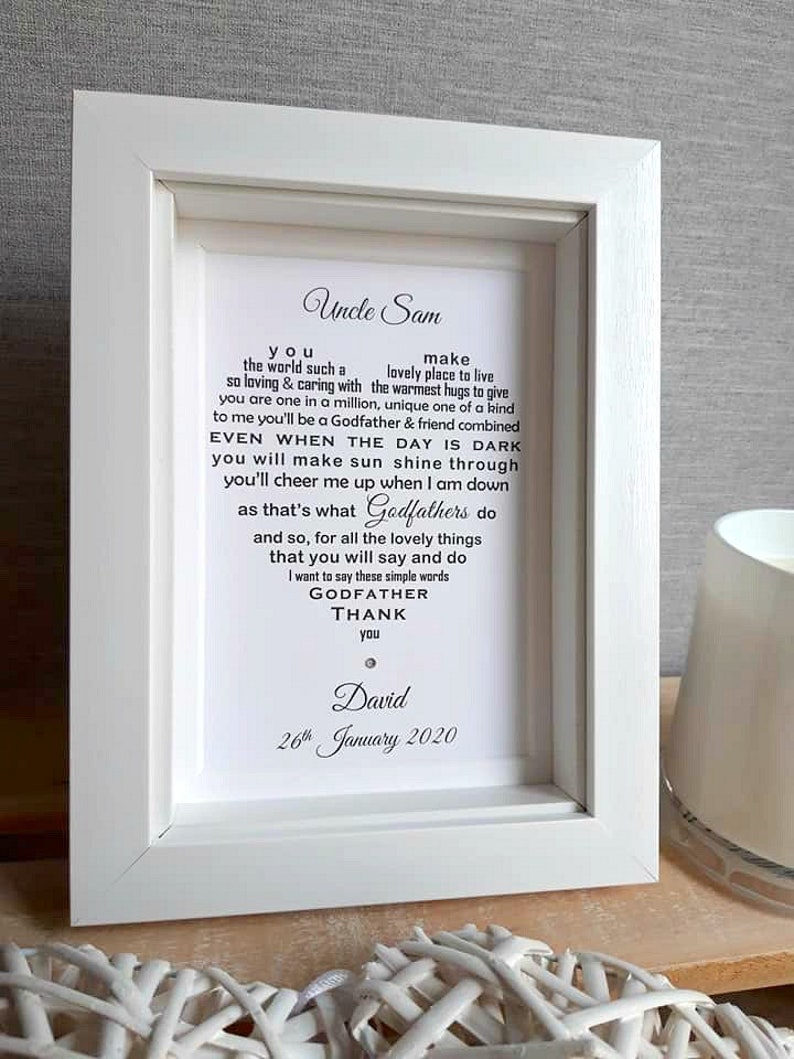 Uncle Sam
you make
the world such a lovely place to live
so loving & caring with the warmest hugs to give
you are one in a million, unique one of a kind
to me you'll be a Godfather & friend combined
EVEN WHEN THE DAY IS DARK
you will make sun shine through
you'll cheer me up when I am down
as that's what Godfathers do
and so, for all the lovely things
that you will say and do
I want to say these simple words
GODFATHER
THANK
you
David
26th January 2020